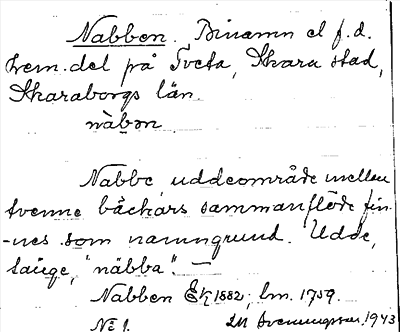 Nabben. Binamn el f.d.
hem.del på Tveta, Skara stad,
Skaraborgs län.
nàbən
Nabbe, uddeområde mellan
tvenne bäckars sammanflöde fin-
-nes som namngrund. Udde,
tånge, "näbba". —
Nabben 1882; lm. 1759.
No 1. Svenningsson 1943